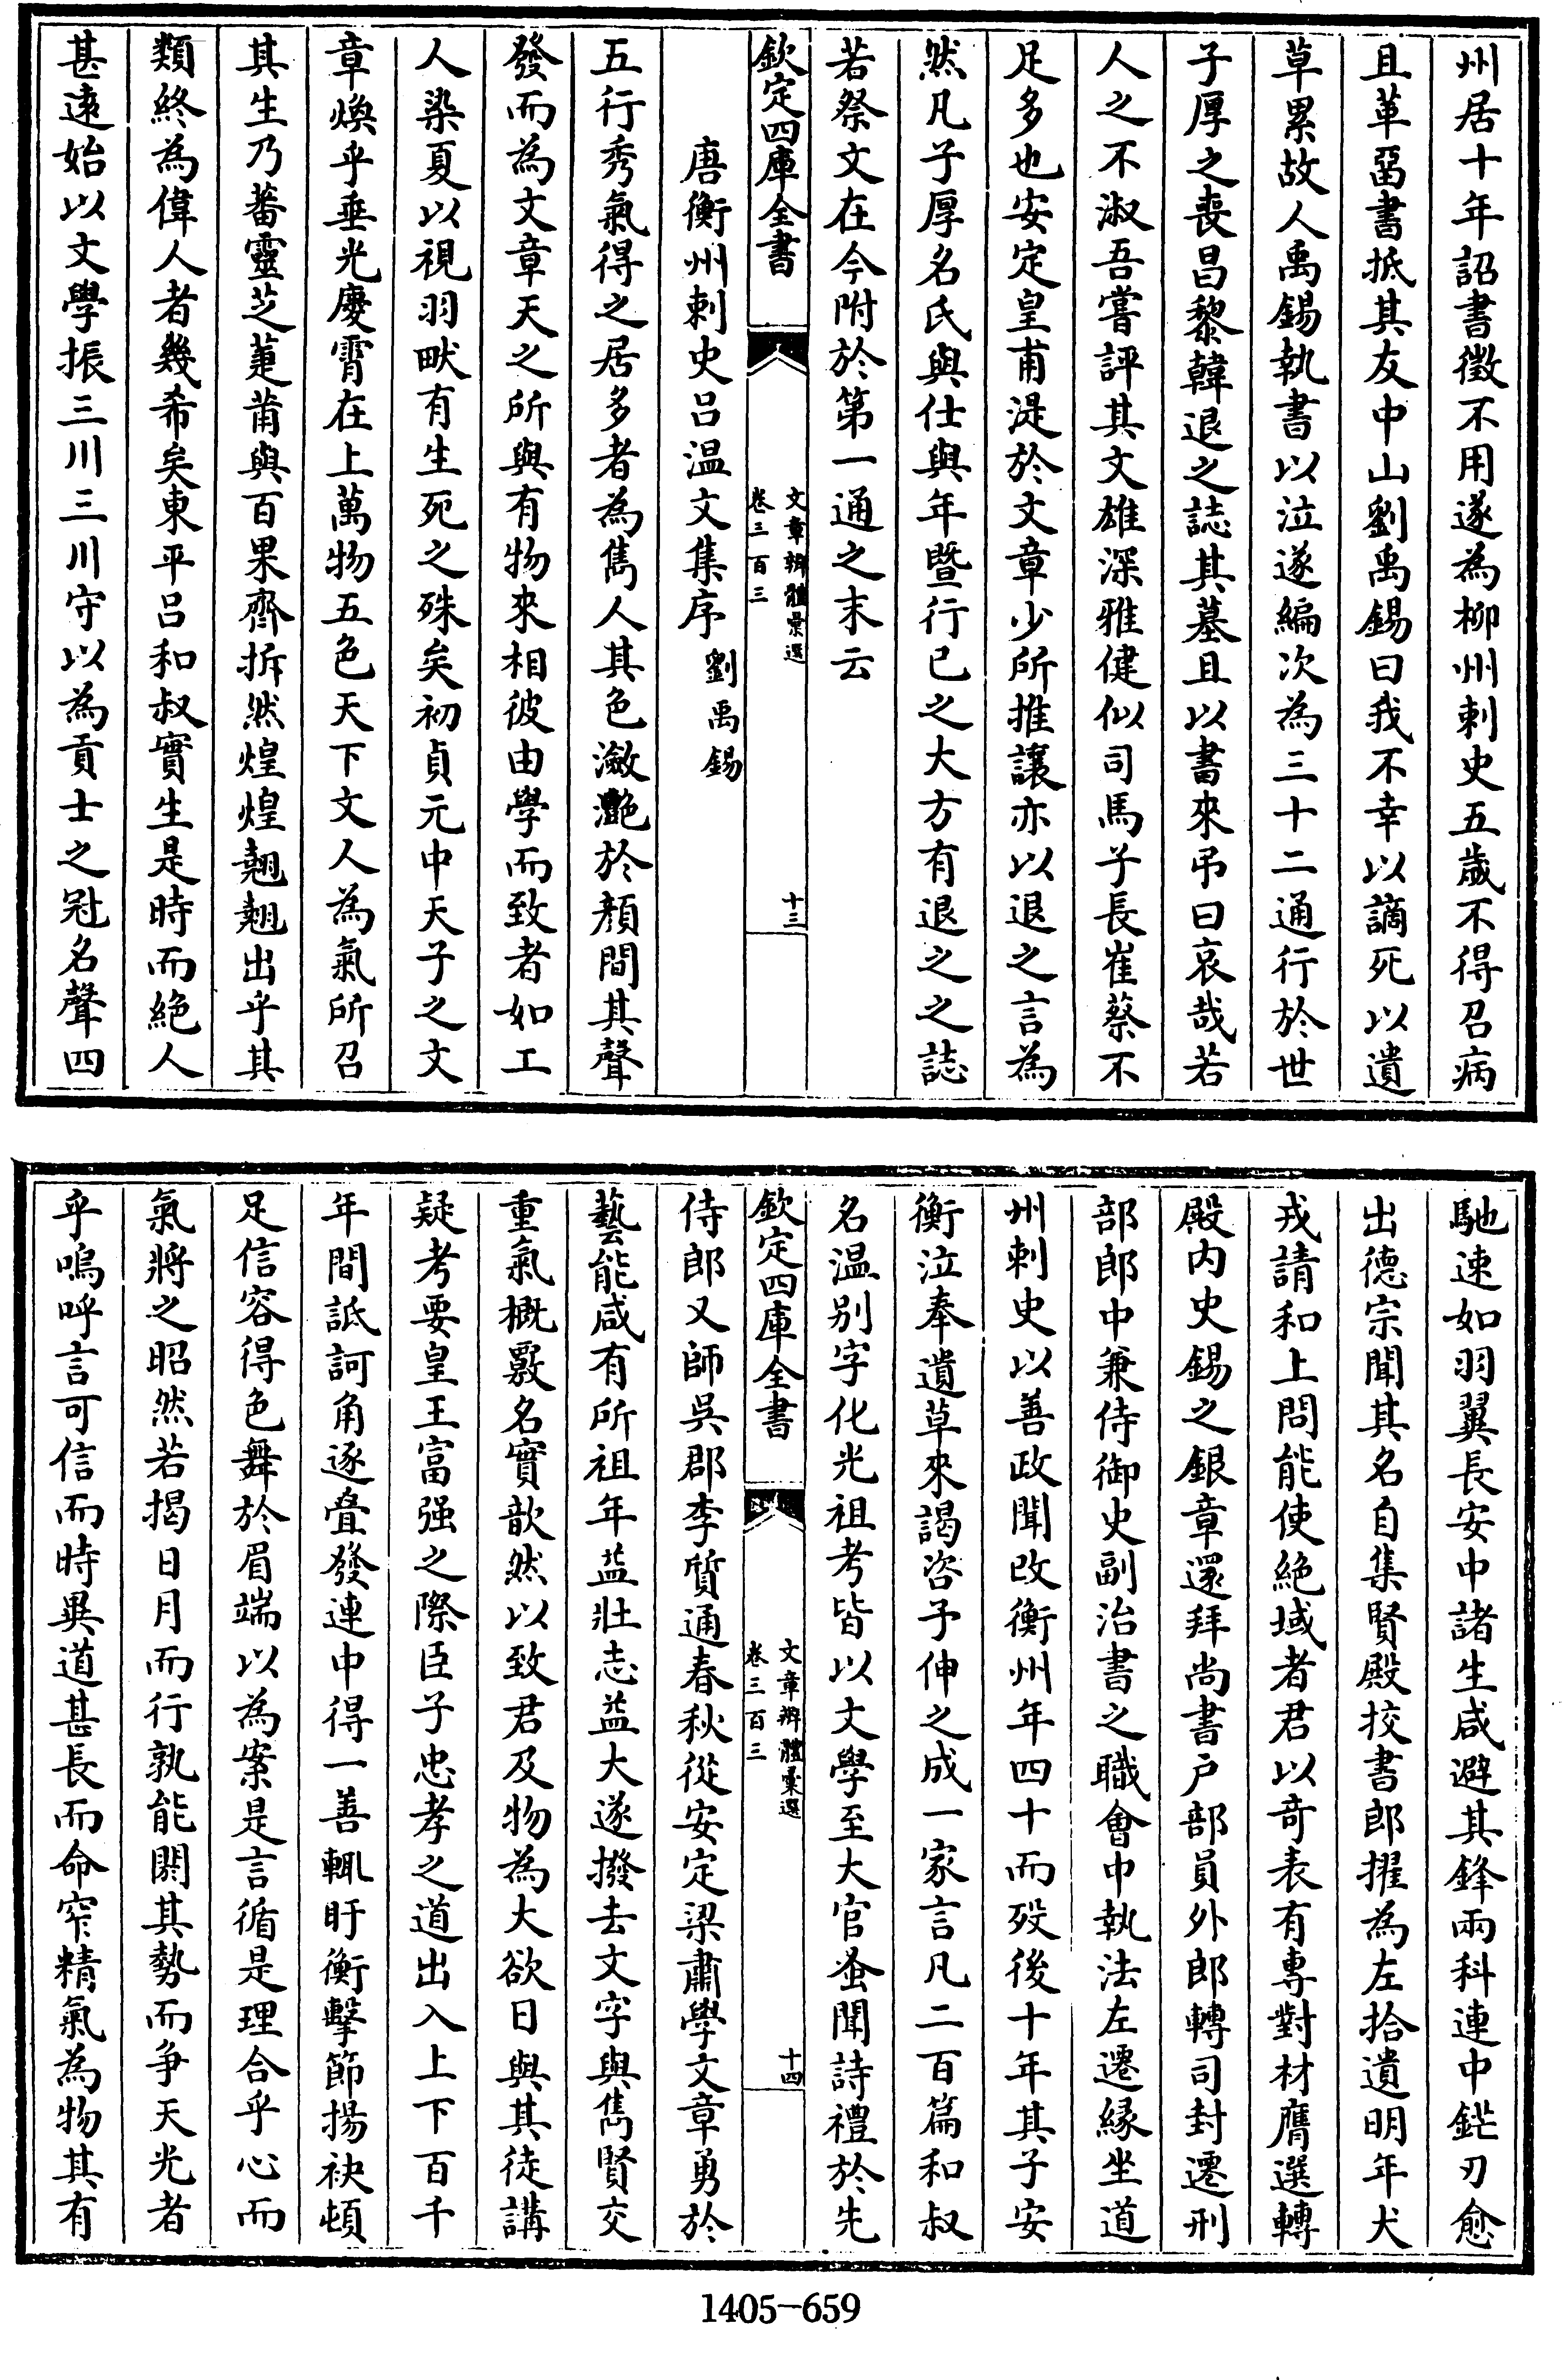 州居十年詔書徵不用遂為柳州刺史五歲不得召病
且革畱書抵其友中山劉禹錫曰我不幸以謫死以遺
草累故人禹錫執書以泣遂編次為三十二通行於世
子厚之喪昌黎韓退之誌其墓且以書來弔曰哀哉若
人之不淑吾嘗評其文雄深雅健似司馬子長崔蔡不
足多也安定皇甫湜於文章少所推讓亦以退之言為
然凡子厚名氏與仕與年暨行已之大方有退之之誌
若祭文在今附於第一通之末云
欽定四庫全書
文章辨體彙選
卷三百三
十三
唐衡州刺史呂溫文集序 劉禹錫
五行秀氣得之居多者為雋人其色瀲灧於顏間其聲
發而為文章天之所與有物來相彼由學而致者如工
人染夏以視羽畎有生死之殊矣初貞元中天子之文
章煥乎垂光慶霄在上萬物五色天下文人為氣所召
其生乃蕃靈芝萐莆與百果齊拆然煌煌翹翹出乎其
類終為偉人者幾希矣東平呂和叔實生是時而絕人
甚遠始以文學振三川三川守以為貢士之冠名聲四
馳速如羽翼長安中諸生咸避其鋒兩科連中鋩刃愈
出德宗聞其名自集賢殿挍書郎擢為左拾遺明年犬
戎請和上問能使絕域者君以奇表有專對材膺選轉
殿内史錫之銀章還拜尚書户部員外郎轉司封遷刑
部郎中兼侍御史副治書之職會中執法左遷緣坐道
州刺史以善政聞改衡州年四十而殁後十年其子安
衡泣奉遺草來謁咨予伸之成一家言凡二百篇和叔
名温别字化光祖考皆以文學至大官蚤聞詩禮於先
欽定四庫全書
文章辨體彙選
卷三百三
十四
侍郎又師吳郡李質通春秋從安定梁肅學文章勇於
藝能咸有所祖年益壯志益大遂撥去文字與雋賢交
重氣概覈名實歆然以致君及物為大欲日與其徒講
疑考要皇王富强之際臣子忠孝之道出入上下百千
年間詆訶角逐疊發連中得一善輒盱衡擊節揚袂頓
足信容得色舞於眉端以為案是言循是理合乎心而
氣將之昭然若揭日月而行孰能閼其勢而争天光者
乎嗚呼言可信而時異道甚長而命窄精氣為物其有
1405-659